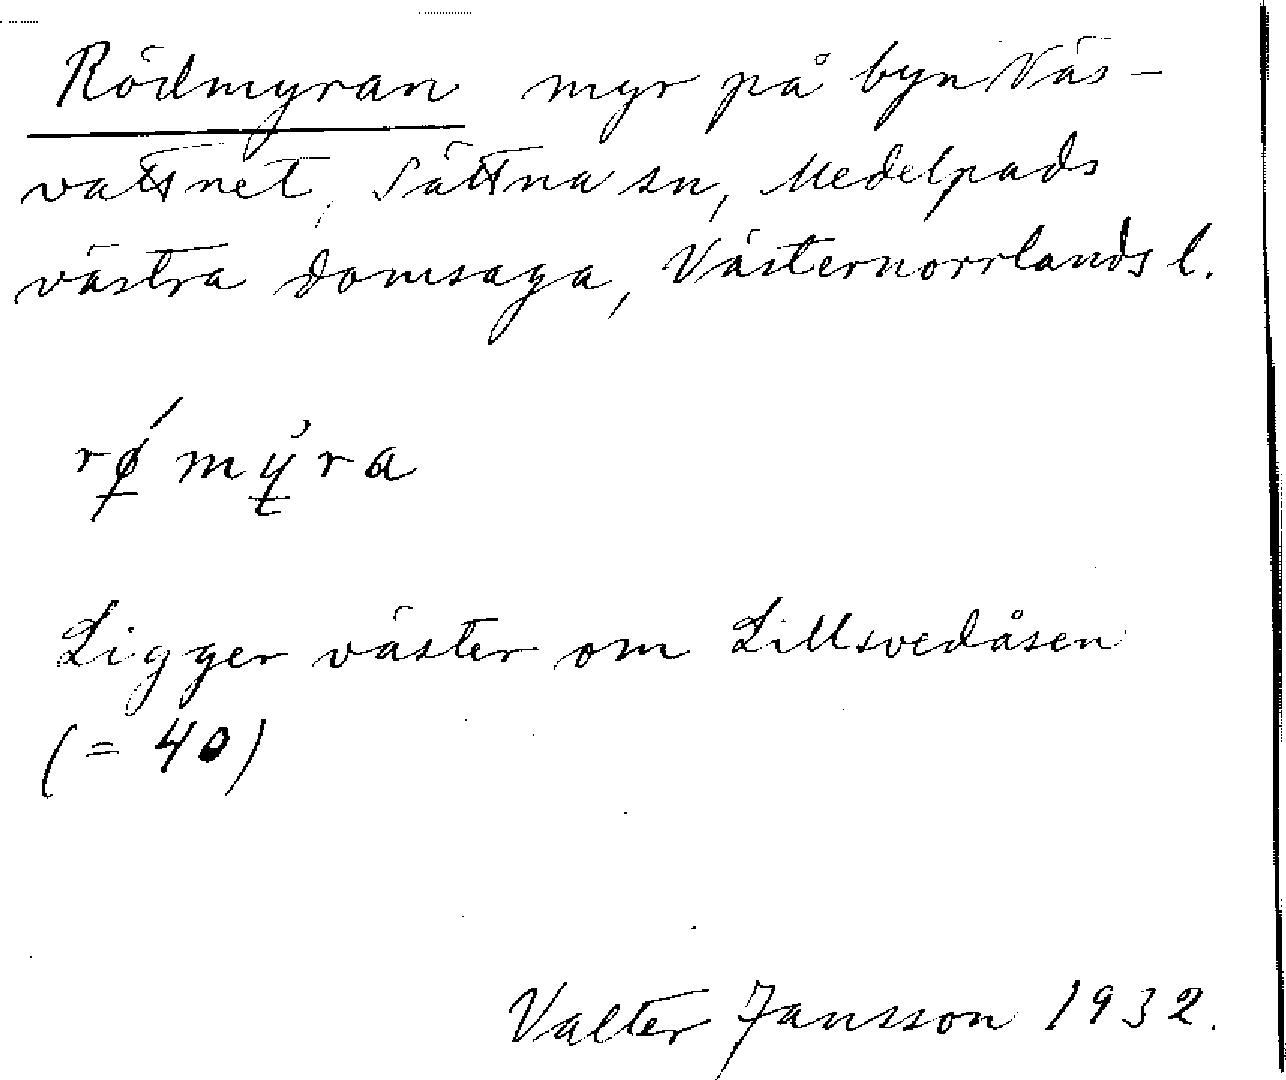 Rödmyran myr på byn Väs-
vattnet, Sättna sn, Medelpads
västra domsaga, Västernorrlands l.
rǿ̱mỳ̱ra
Ligger väster om Lillsvedåsen
(= 40)
Valter Jansson 1932.